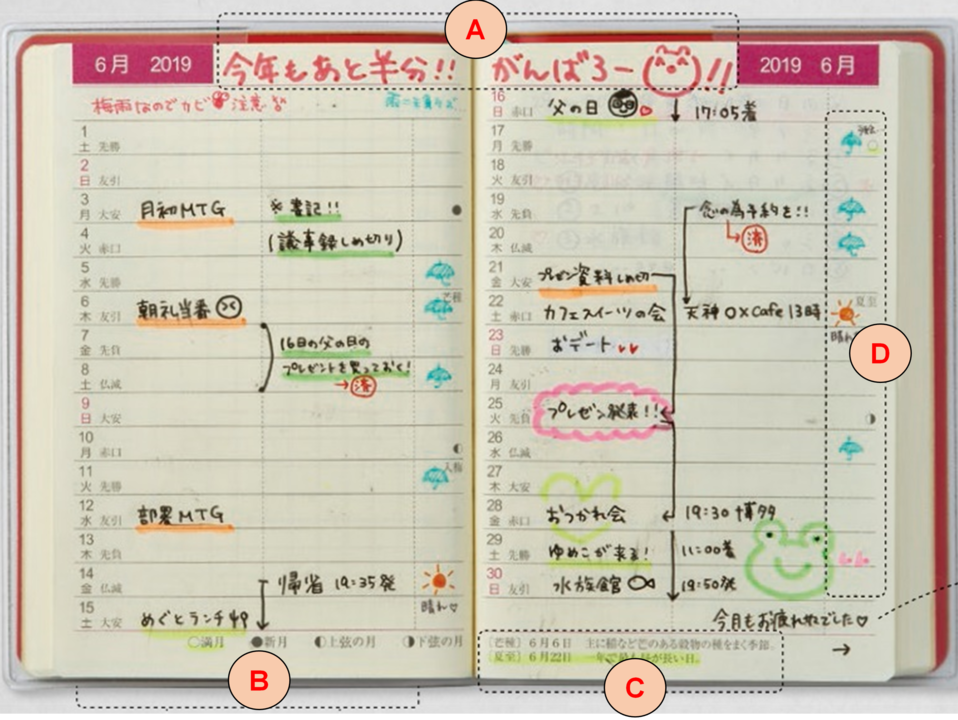 A
6月 2019
今年もあと半分!!
がんばろー!!
2019 6月
梅雨なのでカビ注意
1 土 先勝
2 日 友引
3 月 大安 月初MTG ※書記!!
4 火 赤口 (議事録しめ切り)
5 水 先勝
6 木 友引 朝礼当番 芒種
7 金 先負 16日の父の日の
8 土 仏滅 プレゼントを買っておく!
→済
9 日 大安
10 月 赤口
11 火 先勝 入梅
12 水 友引 部署MTG
13 木 先負
14 金 仏滅 帰省 19:35発
晴れ♡
15 土 大安 めぐとランチ
○満月 ●新月 ◐上弦の月 ◑下弦の月
16 日 赤口 父の日 ♥ 17:05着
17 月 先勝
18 火 友引
19 水 先負 念の為予約を!!
20 木 仏滅 →済
21 金 大安 プレゼン資料しめ切
22 土 赤口 カフェスイーツの会 天神〇×Cafe 13時 夏至
23 日 先勝 おデート♥♥
24 月 友引
25 火 先負 プレゼン発表!!
26 水 仏滅
27 木 大安
28 金 赤口 おつかれ会 19:30 博多
29 土 先勝 ゆめこが来る! 11:00着
30 日 友引 水族館 19:50発
今月もお疲れ様でした♡
[芒種] 6月6日 主に稲など芒のある穀物の種をまく季節。
[夏至] 6月22日 一年で最も昼が長い日。
→
B
C
D